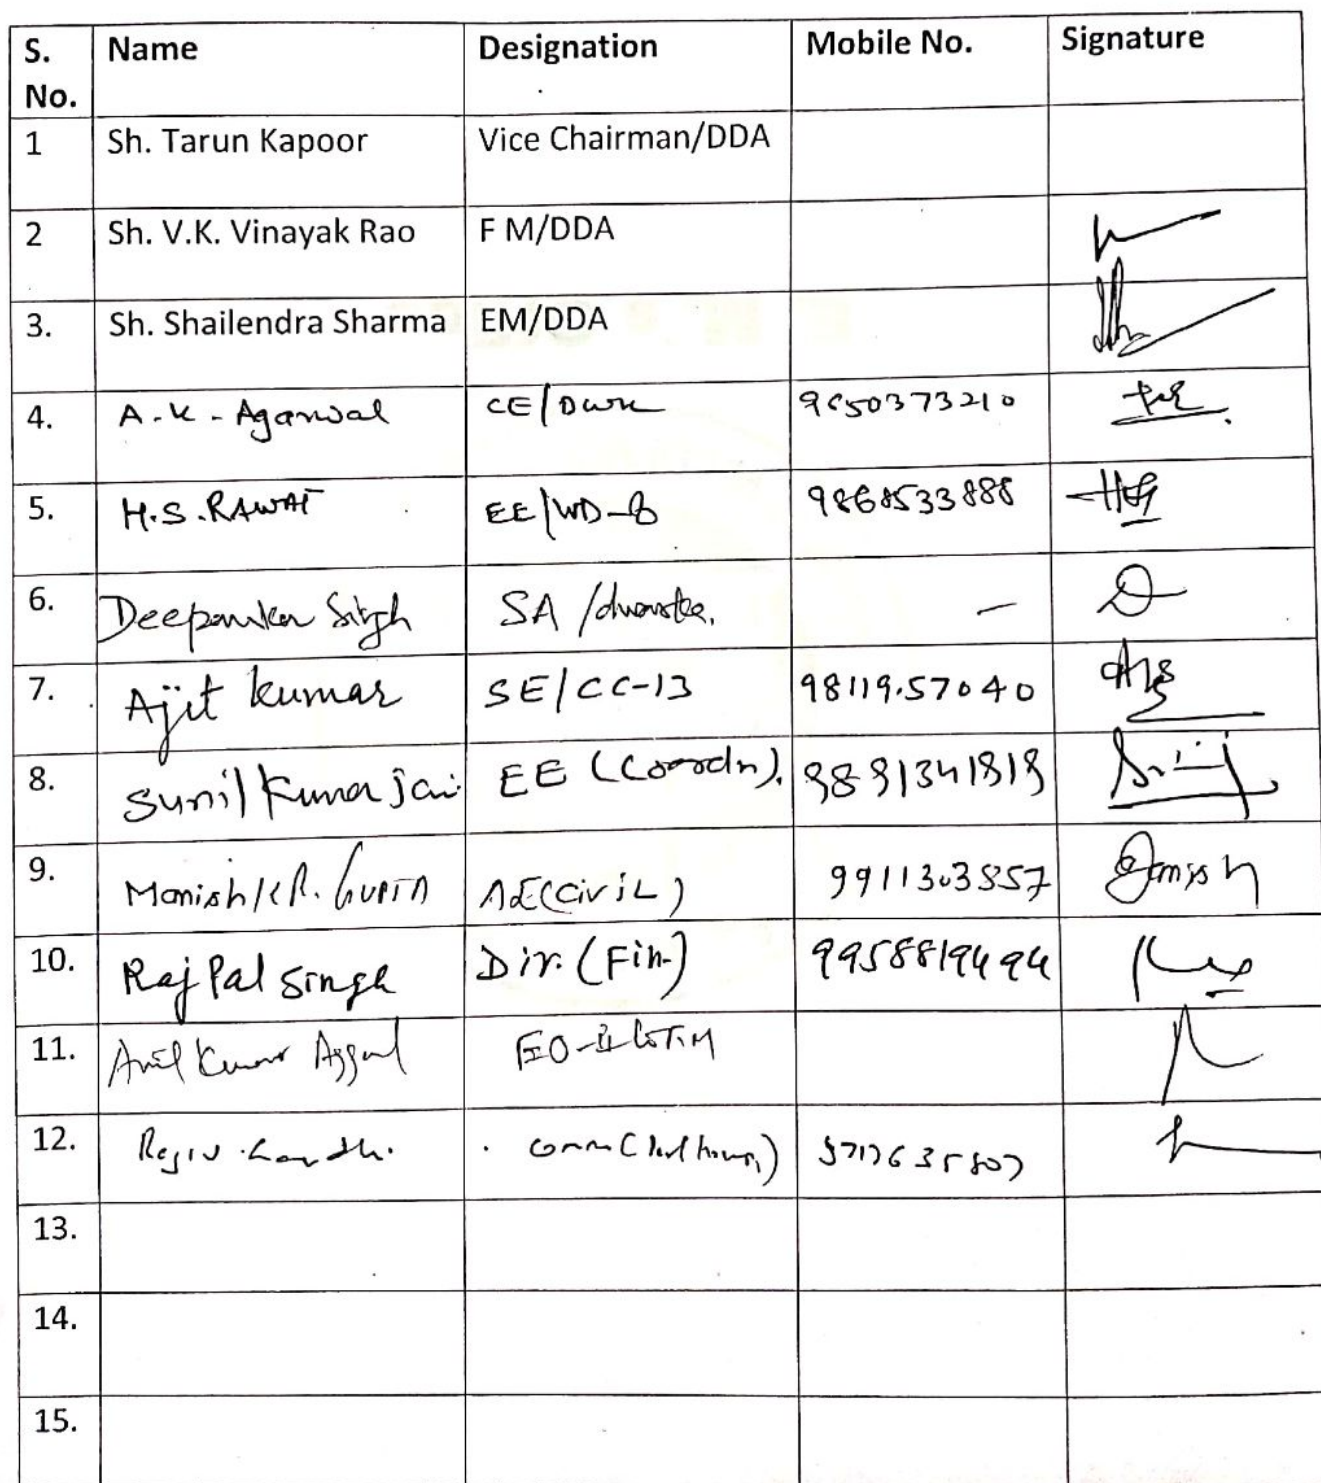 S. No. Name Designation Mobile No. Signature
1 Sh. Tarun Kapoor Vice Chairman/DDA
2 Sh. V.K. Vinayak Rao F M/DDA
3. Sh. Shailendra Sharma EM/DDA
4. A.K. Agarwal CE/Dwk 9650373210
5. H.S. RAWAT EE/WD-8 9868533888
6. Deepankar Singh SA /dwarka. —
7. Ajit kumar SE/CC-13 9811957040
8. Sunil Kumar Jain EE (Coordn). 9891341919
9. Manish KR. GUPTA AE(CiviL)
10. Raj Pal Singh Dir. (Fin.) 9958819494
11. Anil Kumar Aggarwal
12. Rajiv Gandhi.
13.
14.
15.